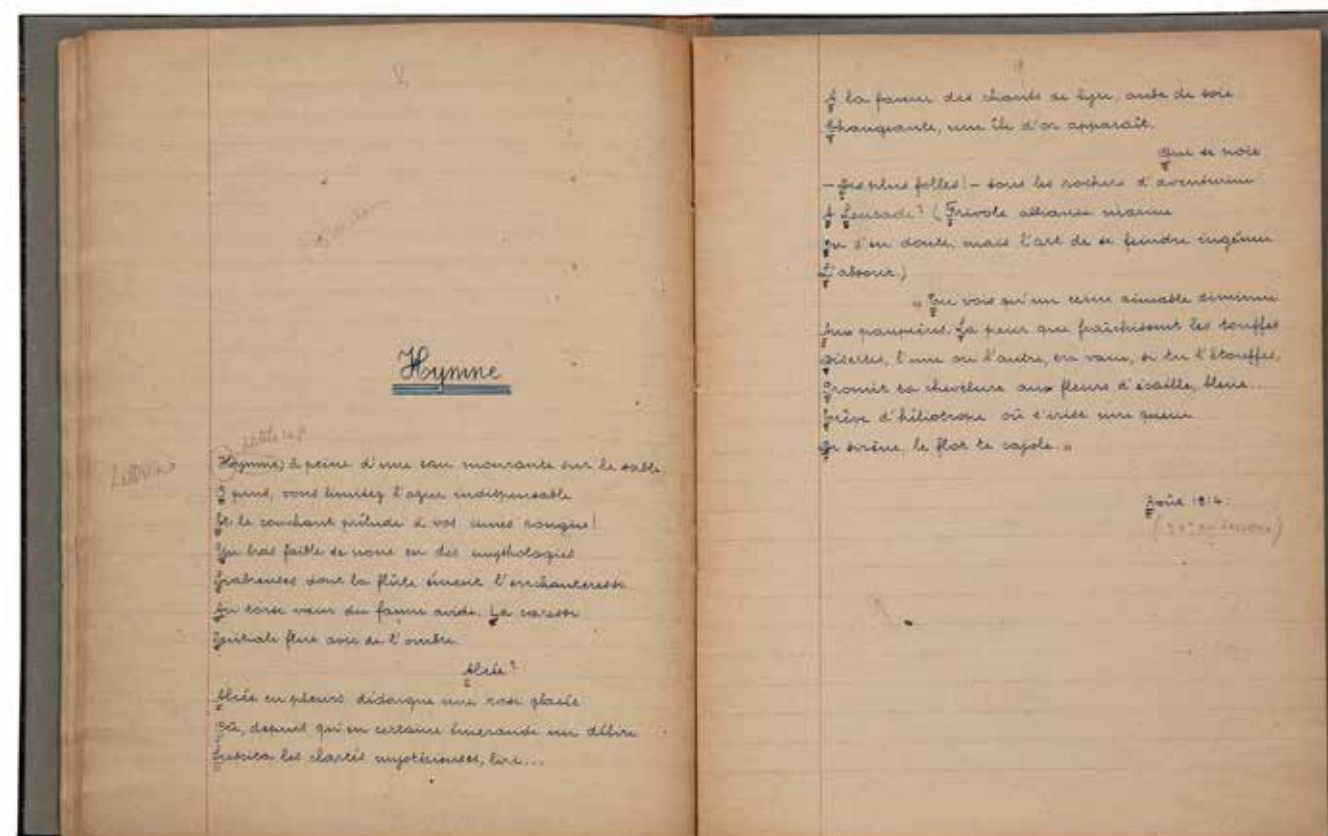 8
Hymne
petite cap
Lettrine
Hymne, à peine d'une eau mourante sur le sable,
O pins, vous
Et le couchant prélude à vos cimes rougies!
Un bras faible se noue en des mythologies
dont la flûte émeut l'enchanteresse
Au torse vain du faune avide. La caresse
Initiale flue avec de l'ombre.
Alcée?
Alcée en pleurs dédaigne une rose glacée
Où, depuis qu'en certaine émeraude un délire
Suscita les clartés mystérieuses, lire...
9
A la faveur des chants de lyre, aube de soie
Changeante, une île d'or apparaît.
Que se noie
— plus folles! — sous les rochers d'aventurine
A Leucade? (Frivole alliance marine
On s'en doute, mais l'art de se feindre ingénue
L'absout.)
„ Tu vois qu'un cerne aimable diminue
paupières. La peur que fraîchissent les touffes
Disertes, l'une ou l'autre, en vain, si tu l'étouffes,
Promit ta chevelure aux fleurs d'écaille, bleue..
Grève d'héliotrope où s'irise une queue
De sirène, le flot te cajole. „
Août 1914.